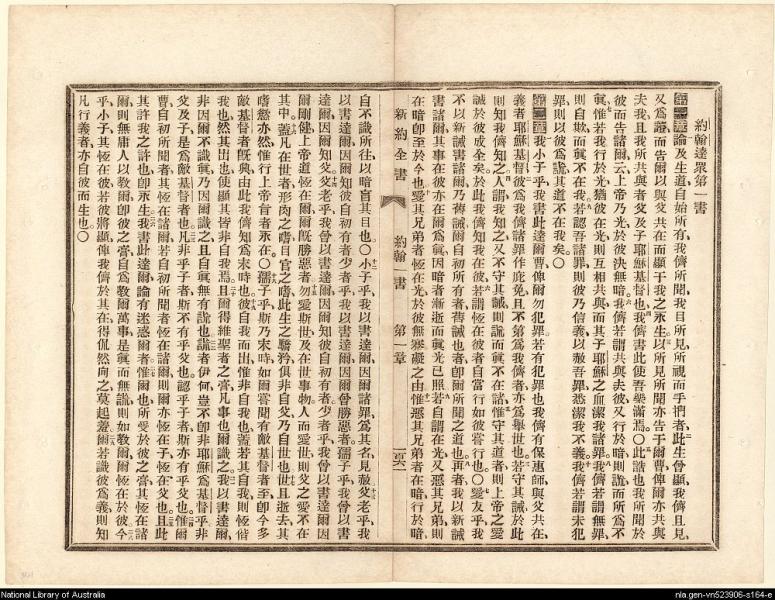 約翰達眾第一書
論及生道自始所有我儕所聞我目所見所視而手捫者此生曾顯我儕且見
又爲證而告爾以與父共在而顯于我之永生以所見所聞亦告于爾曹俾爾亦共與
夫我且我所共與者父及子耶穌基督也我儕書此使吾樂滿焉〇此誥也我所聞於
彼而告諸爾云上帝乃光於彼決無暗我儕若謂共與夫彼又行於暗則謊而所爲不
眞惟若我行於光猶彼在光則互相共與而其子耶穌之血潔我諸罪我儕若謂無罪
則自欺而眞不在我若認吾諸罪則彼乃信義以赦吾罪悉潔我不義我儕若謂未犯
罪則以彼爲謊其道不在我矣〇
我小子乎我書此達爾曹俾爾勿犯罪若有犯罪也我儕有保惠師與父共在
義者耶穌基督彼爲我儕諸罪作庶免且不第爲我儕者亦爲舉世也若守其誡於此
則知我儕知之人謂我知之又不守其誡則謊而眞不在諸惟守其道者則上帝之愛
誠於彼成全矣於此我儕知我在彼若謂恆在彼者自當行如彼嘗行也〇愛友乎我
不以新誡書諸爾乃舊誡爾自初所有者舊誡也者卽爾所聞之道也再者我以新誡
書諸爾其事在彼亦在爾爲眞因暗者漸逝而眞光已照若自謂在光又惡其兄弟則
在暗卽至於今也愛其兄弟者恆在光於彼無窒礙之由惟惡其兄弟者在暗行於暗
新約全書 約翰一書 第一章
自不識所往以暗盲其目也〇小子乎我以書達爾因爾諸罪爲其名見赦父老乎我
以書達爾因爾知彼自初有者少者乎我以書達爾因爾曾勝惡者孺子乎我曾以書
達爾因爾知父父老乎我曾以書達爾因爾知彼自初有者少者乎我曾以書達爾因
爾剛健上帝道恆在爾爾旣勝惡者勿愛斯世及在世事物人而愛世則父之愛不在
其中蓋凡在世者形肉之嗜目官之嗜此生之驕矜俱非自父乃自世也世且逝去其
嗜慾亦然惟行上帝旨者永在〇孺子乎斯乃末時如爾嘗聞有敵基督者至卽今多
敵基督者旣興由此我儕知爲末時也彼自我而出惟非自我也蓋若其自我則恆偕
我也然其出也使顯其皆非自我焉且爾得維聖者之膏凡事也爾識之我以書達爾
非因爾不識眞乃因爾識之且自眞無有謊也謊者伊何豈不卽非耶穌爲基督乎非
父及子是爲敵基督者也凡非乎子者斯不有乎父也認乎子者斯亦有乎父也惟爾
曹自初所聞者其恆在諸爾若自初所聞者恆在諸爾則爾亦恆在子恆在父也且此
其許我之許也卽永生我書此達爾論有迷惑爾者惟爾也所受於彼之膏其恆在諸
爾則無庸人以敎爾卽彼之膏自爲敎爾萬事是眞而無謊則如敎爾爾恆在於彼今
乎小子其恆在彼若彼將顯俾我儕於其在得侃然向之莫起羞爾若識彼爲義則知
凡行義者亦自彼而生也〇
National Library of Australia
nla.gen-vn523906-s164-e